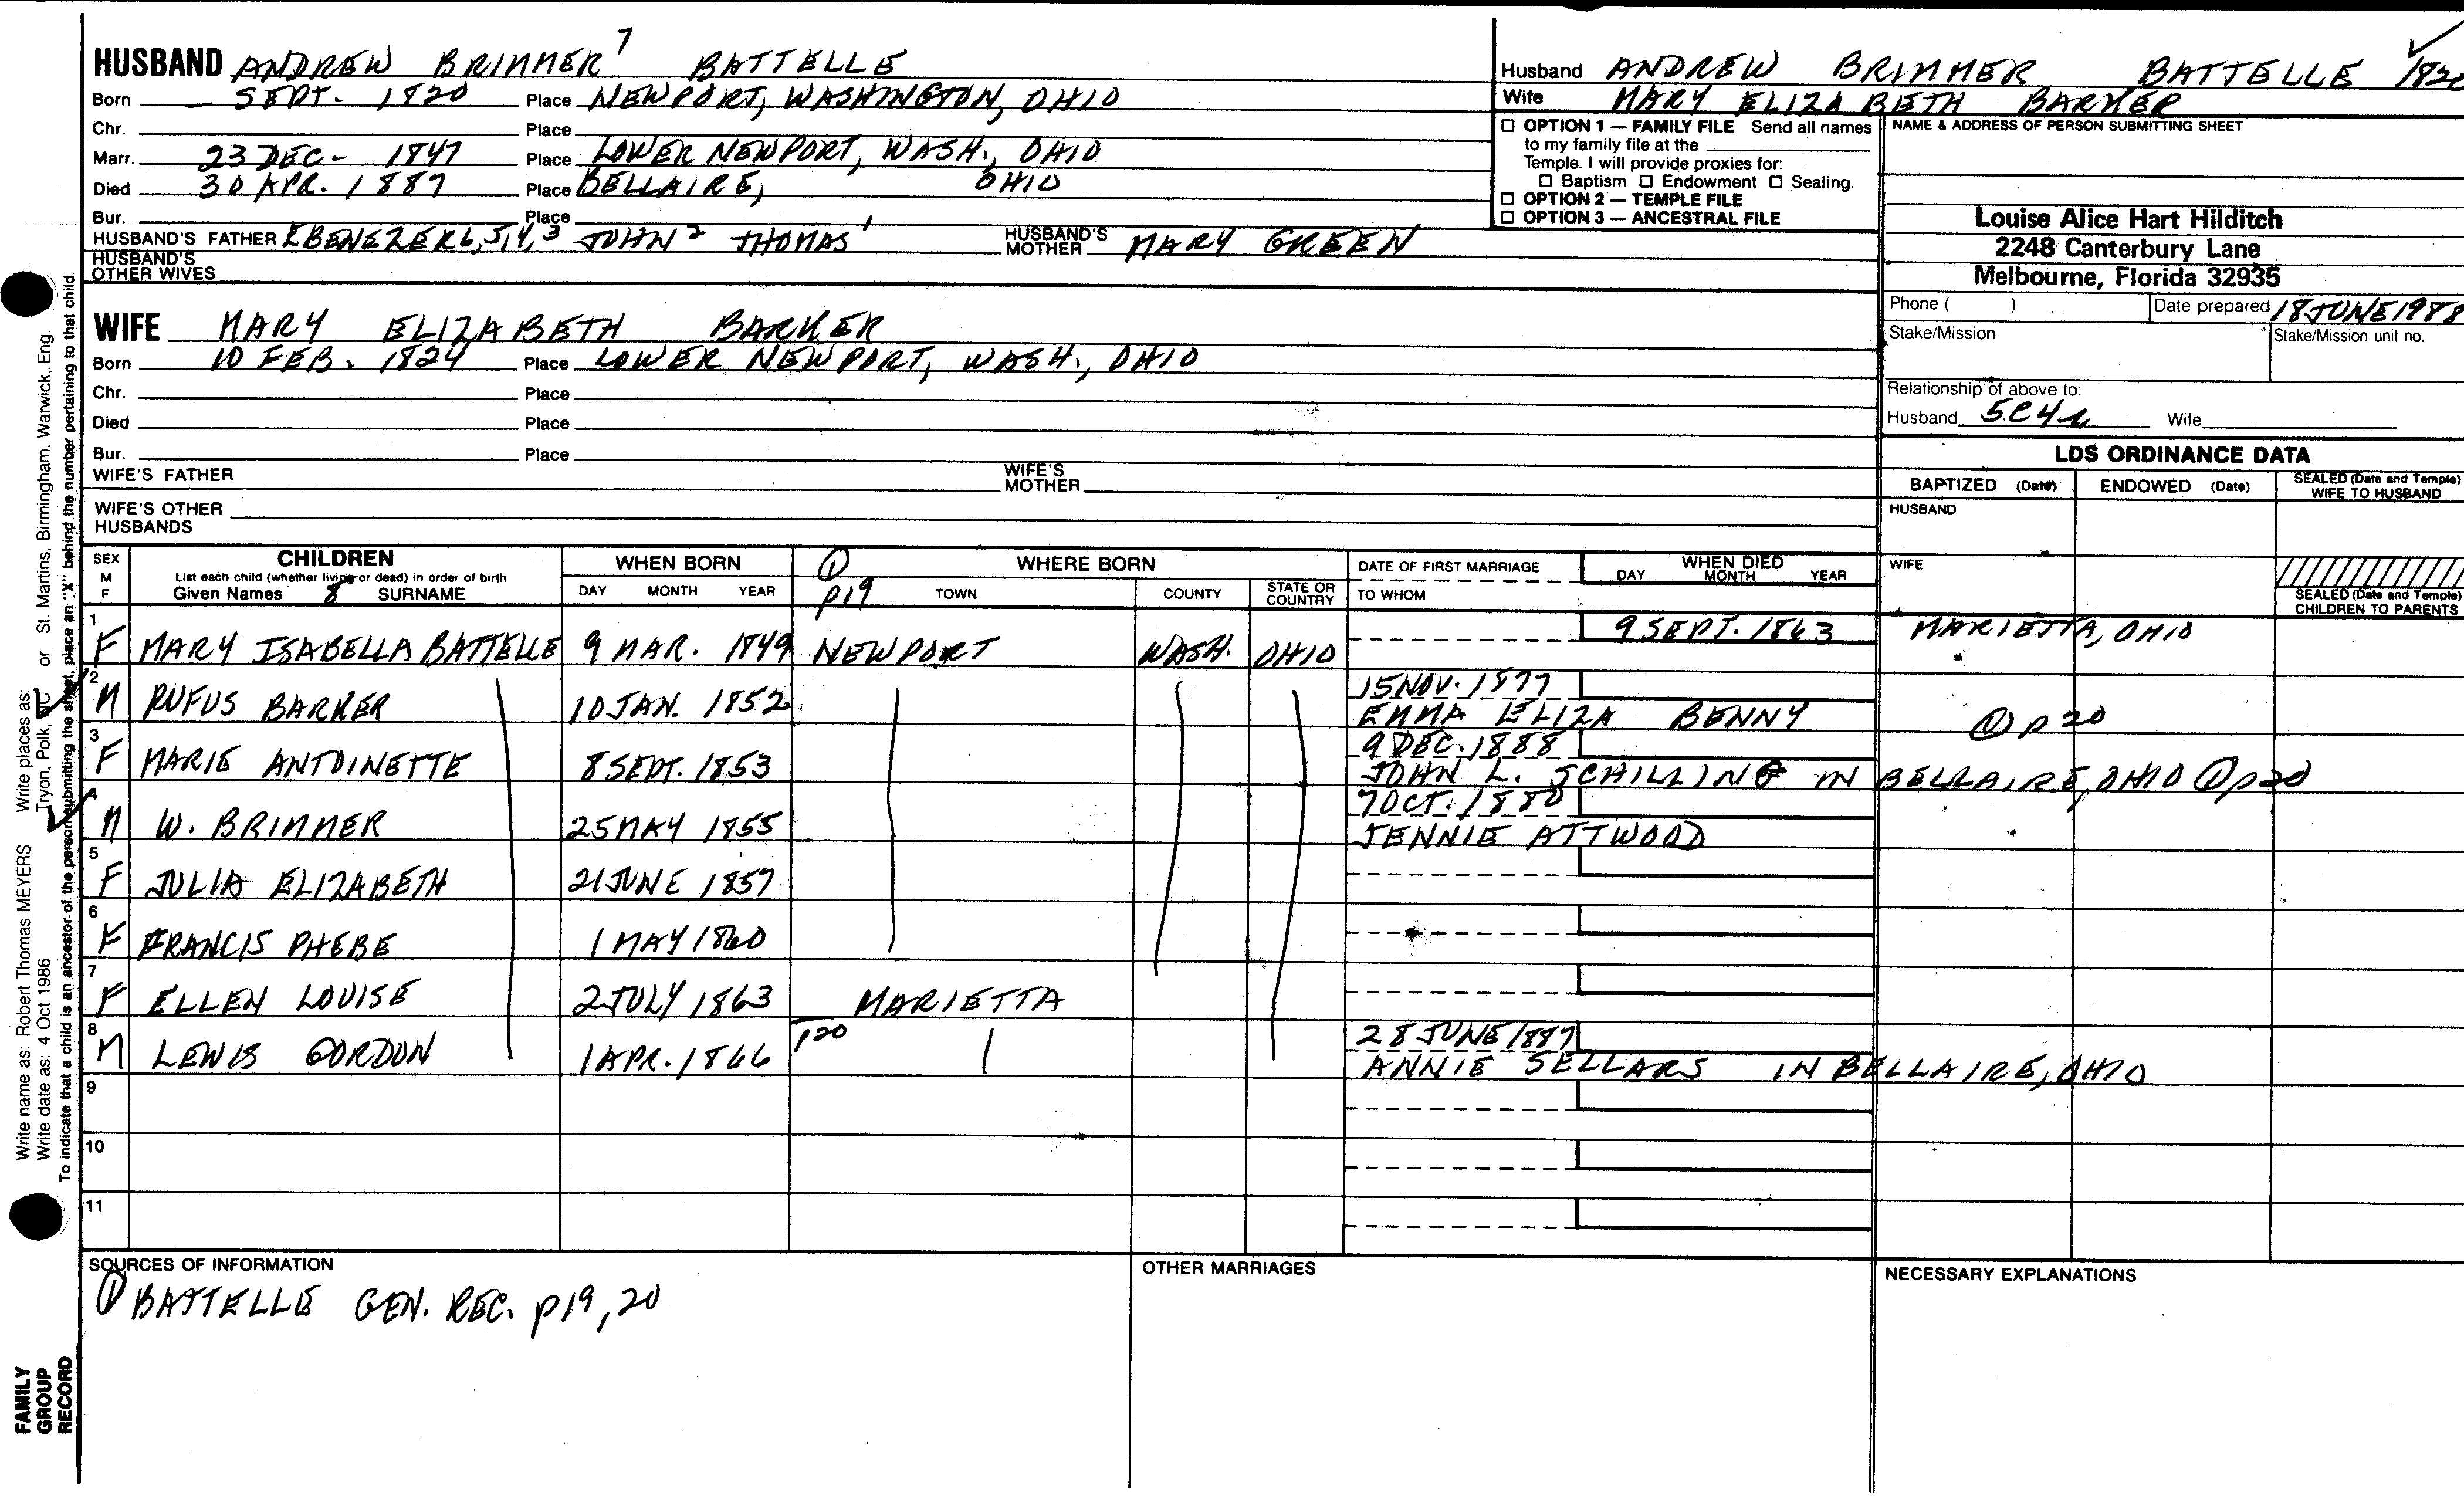 HUSBAND ANDREW BRIMMER 7 BATTELLE
Born SEPT. 1820 Place NEWPORT, WASHINGTON, OHIO
Chr. Place
Marr. 23 DEC - 1847 Place LOWER NEWPORT, WASH., OHIO
Died 30 APR. 1887 Place BELLAIRE, OHIO
Bur. Place
HUSBAND'S FATHER EBENEZER 6, 5, 4, 3 JOHN 2 THOMAS 1 HUSBAND'S MOTHER MARY GREEN
HUSBAND'S OTHER WIVES
WIFE MARY ELIZABETH BARKER
Born 10 FEB. 1824 Place LOWER NEWPORT, WASH., OHIO
Chr. Place
Died Place
Bur. Place
WIFE'S FATHER WIFE'S MOTHER
WIFE'S OTHER HUSBANDS
Husband ANDREW BRIMMER BATTELLE
Wife MARY ELIZABETH BARKER
☐ OPTION 1 — FAMILY FILE Send all names
to my family file at the
Temple. I will provide proxies for:
☐ Baptism ☐ Endowment ☐ Sealing.
☐ OPTION 2 — TEMPLE FILE
☐ OPTION 3 — ANCESTRAL FILE
NAME & ADDRESS OF PERSON SUBMITTING SHEET
Louise Alice Hart Hilditch
2248 Canterbury Lane
Melbourne, Florida 32935
Phone ( ) Date prepared 18 JUNE 1988
Stake/Mission Stake/Mission unit no.
Relationship of above to:
Husband Wife
LDS ORDINANCE DATA
BAPTIZED (Date) ENDOWED (Date) SEALED (Date and Temple) WIFE TO HUSBAND
HUSBAND
WIFE
SEALED (Date and Temple) CHILDREN TO PARENTS
SEX M F CHILDREN List each child (whether living or dead) in order of birth Given Names 8 SURNAME
WHEN BORN DAY MONTH YEAR
① p19 WHERE BORN TOWN COUNTY STATE OR COUNTRY
DATE OF FIRST MARRIAGE TO WHOM
WHEN DIED DAY MONTH YEAR
1 F MARY ISABELLA BATTELLE 9 MAR. 1849 NEWPORT WASH. OHIO 9 SEPT. 1863 MARIETTA, OHIO
2 M RUFUS BARKER 10 JAN. 1852 15 NOV. 1877
EMMA ELIZA BENNY ① p 20
3 F MARIE ANTOINETTE 8 SEPT. 1853 9 DEC. 1888
JOHN L. SCHILLING IN BELLAIRE, OHIO ① p20
4 M W. BRIMMER 25 MAY 1855 7 OCT. 1880
JENNIE ATTWOOD
5 F JULIA ELIZABETH 21 JUNE 1857
6 F FRANCIS PHEBE 1 MAY 1860
7 F ELLEN LOUISE 2 JULY 1863 MARIETTA
8 M LEWIS GORDON 1 APR. 1866 p20 28 JUNE 1887
ANNIE SELLARS IN BELLAIRE, OHIO
9
10
11
SOURCES OF INFORMATION
① BATTELLE GEN. REC. p19, 20
OTHER MARRIAGES
NECESSARY EXPLANATIONS
Write name as: Robert Thomas MEYERS Write places as: St. Martins, Birmingham, Warwick, Eng.
Write date as: 4 Oct 1986 Tryon, Polk, NC or
To indicate that a child is an ancestor of the person submitting the sheet, place an "X" behind the number pertaining to that child.
FAMILY
GROUP
RECORD